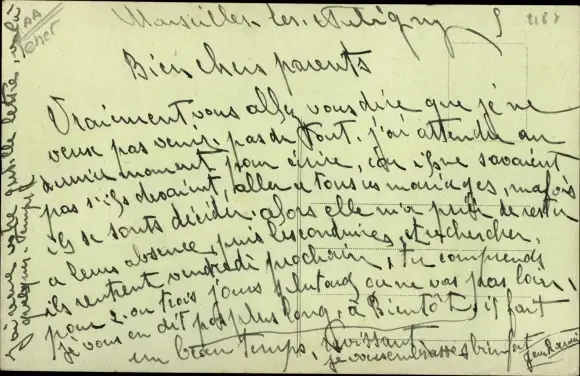 Marseilles-les-Aubigny
Bien chers parents
Vraiment vous allez vous dire que je ne
veux pas venir, pas du tout. j'ai attendu au
dernier moment pour écrire, car ils ne savaient
pas s'ils devaient, aller a tous ces mariages, mafois
ils se sonts décider. alors elle m'a prier de rester
a leurs absence, puis les conduires et rechercher,
ils rentrent vendredi prochain, tu comprends
pour 2 ou trois jours plutard ca ne vas pas loin,
je vous en dit pas plus long, a Bientôt, il fait
un beau temps, ravissant
je vous embrasses bien fort
lettre, voilà
quelques temps
AA
Cher
2187